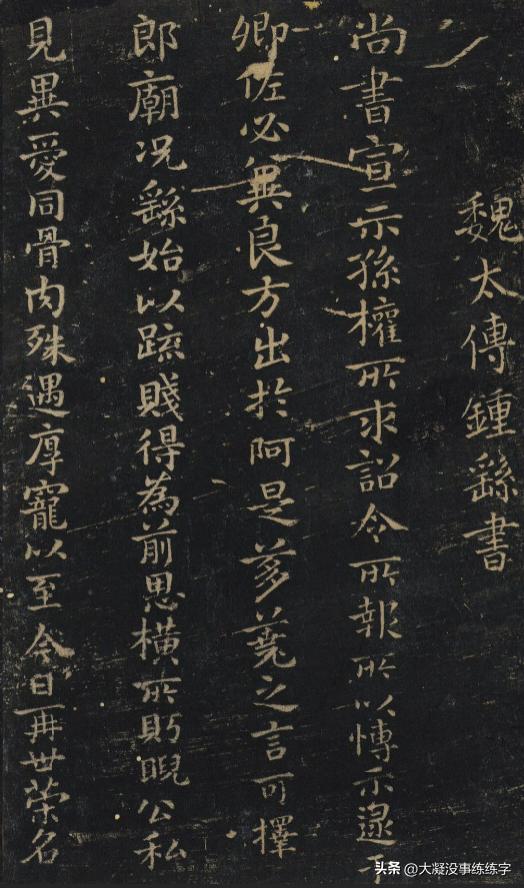 魏太傅鍾繇書
尚書宣示孫權所求詔令所報所以博示逮于
卿佐必冀良方出於阿是芻蕘之言可擇
郎廟況繇始以疏賤得為前恩橫所眄睨公私
見異愛同骨肉殊遇厚寵以至今日再世榮名
头条 @大凝没事练练字